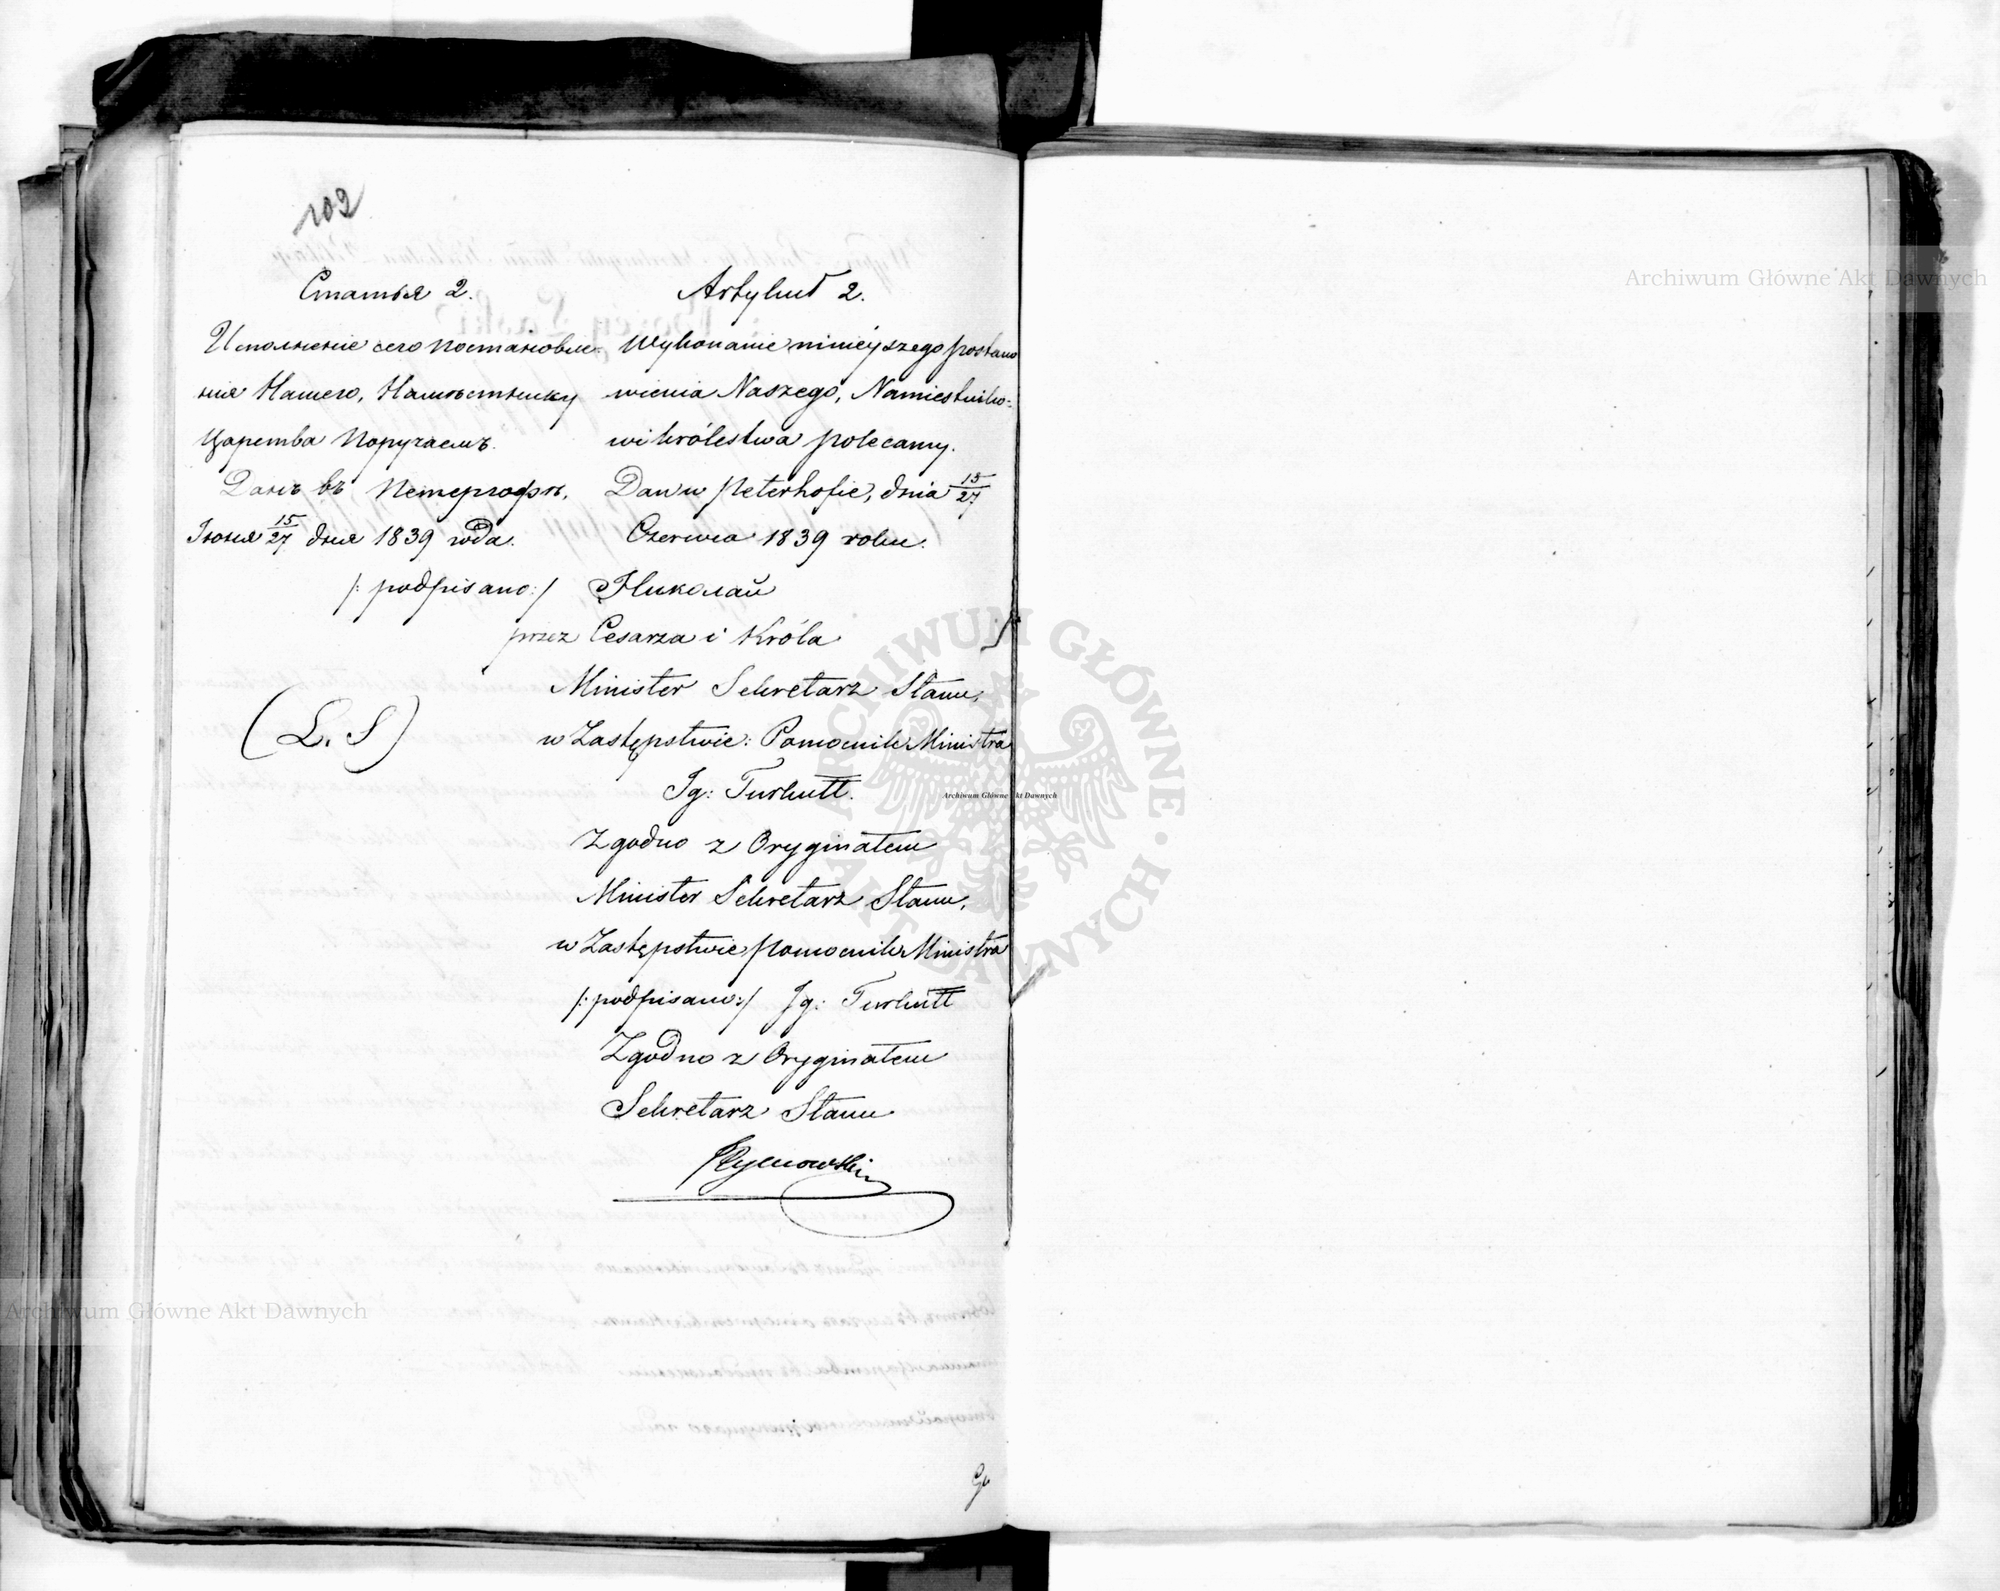 102
Статья 2.
Исполненіе сего постановле=
нія Нашего, Намѣстнику
Царства поручаемъ.
Данъ въ Петергофѣ,
Іюня 15/27 дня 1839 года.
Artykuł 2.
Wykonanie niniéyszego postano
wienia Naszego, Namiestniko=
wi królestwa polecamy.
Dan w Peterhofie, dnia 15/27
Czerwca 1839 roku.
/: podpisano :/ Николай
przez Cesarza i Króla
Minister Sekretarz Stanu,
w Zastępstwie: Pomocnik Ministra
(L. S)
Ig: Turkułł.
Zgodno z Oryginałem
Minister Sekretarz Stanu,
w Zastępstwie Pomocnik Ministra
/: podpisano :/ Ig: Turkułł
Zgodno z Oryginałem
Sekretarz Stanu
ARCHIWUM GŁÓWNE AKT DAWNYCH
Archiwum Główne Akt Dawnych
Archiwum Główne Akt Dawnych
Archiwum Główne Akt Dawnych